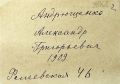 Андрющенко
Александр
Григорьевич
1909
Фалеевская 46